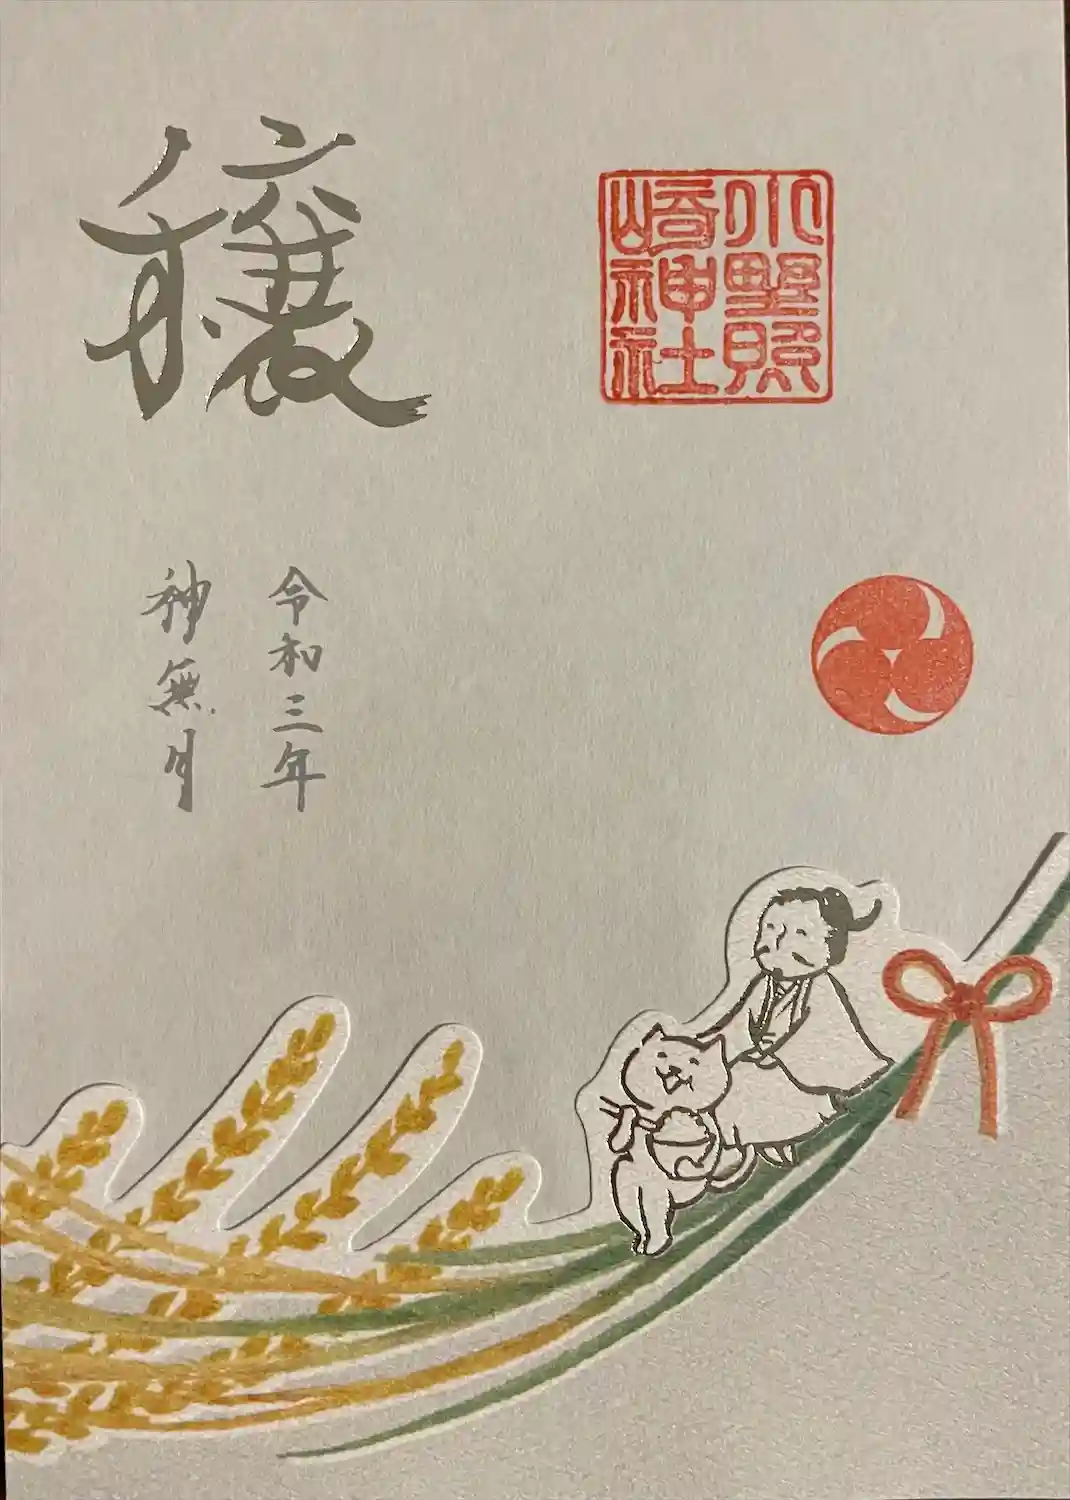 小野照
崎神社
穣
令和三年
神無月